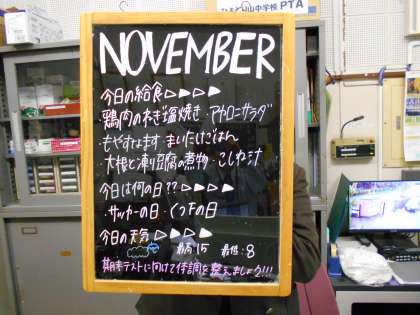 中学校 PTA
NOVEMBER
今日の給食▷▶▷▶
・鶏肉のねぎ塩焼き・マカロニサラダ
・もやすます・まいたけごはん
・大根と凍り豆腐の煮物・こしね汁
今日は何の日??▷▶▷▶
・サッカーの日・くつ下の日
今日の天気▷▶▷▶
最高:15 最低:8
期末テストに向けて体調を整えましょう!!!